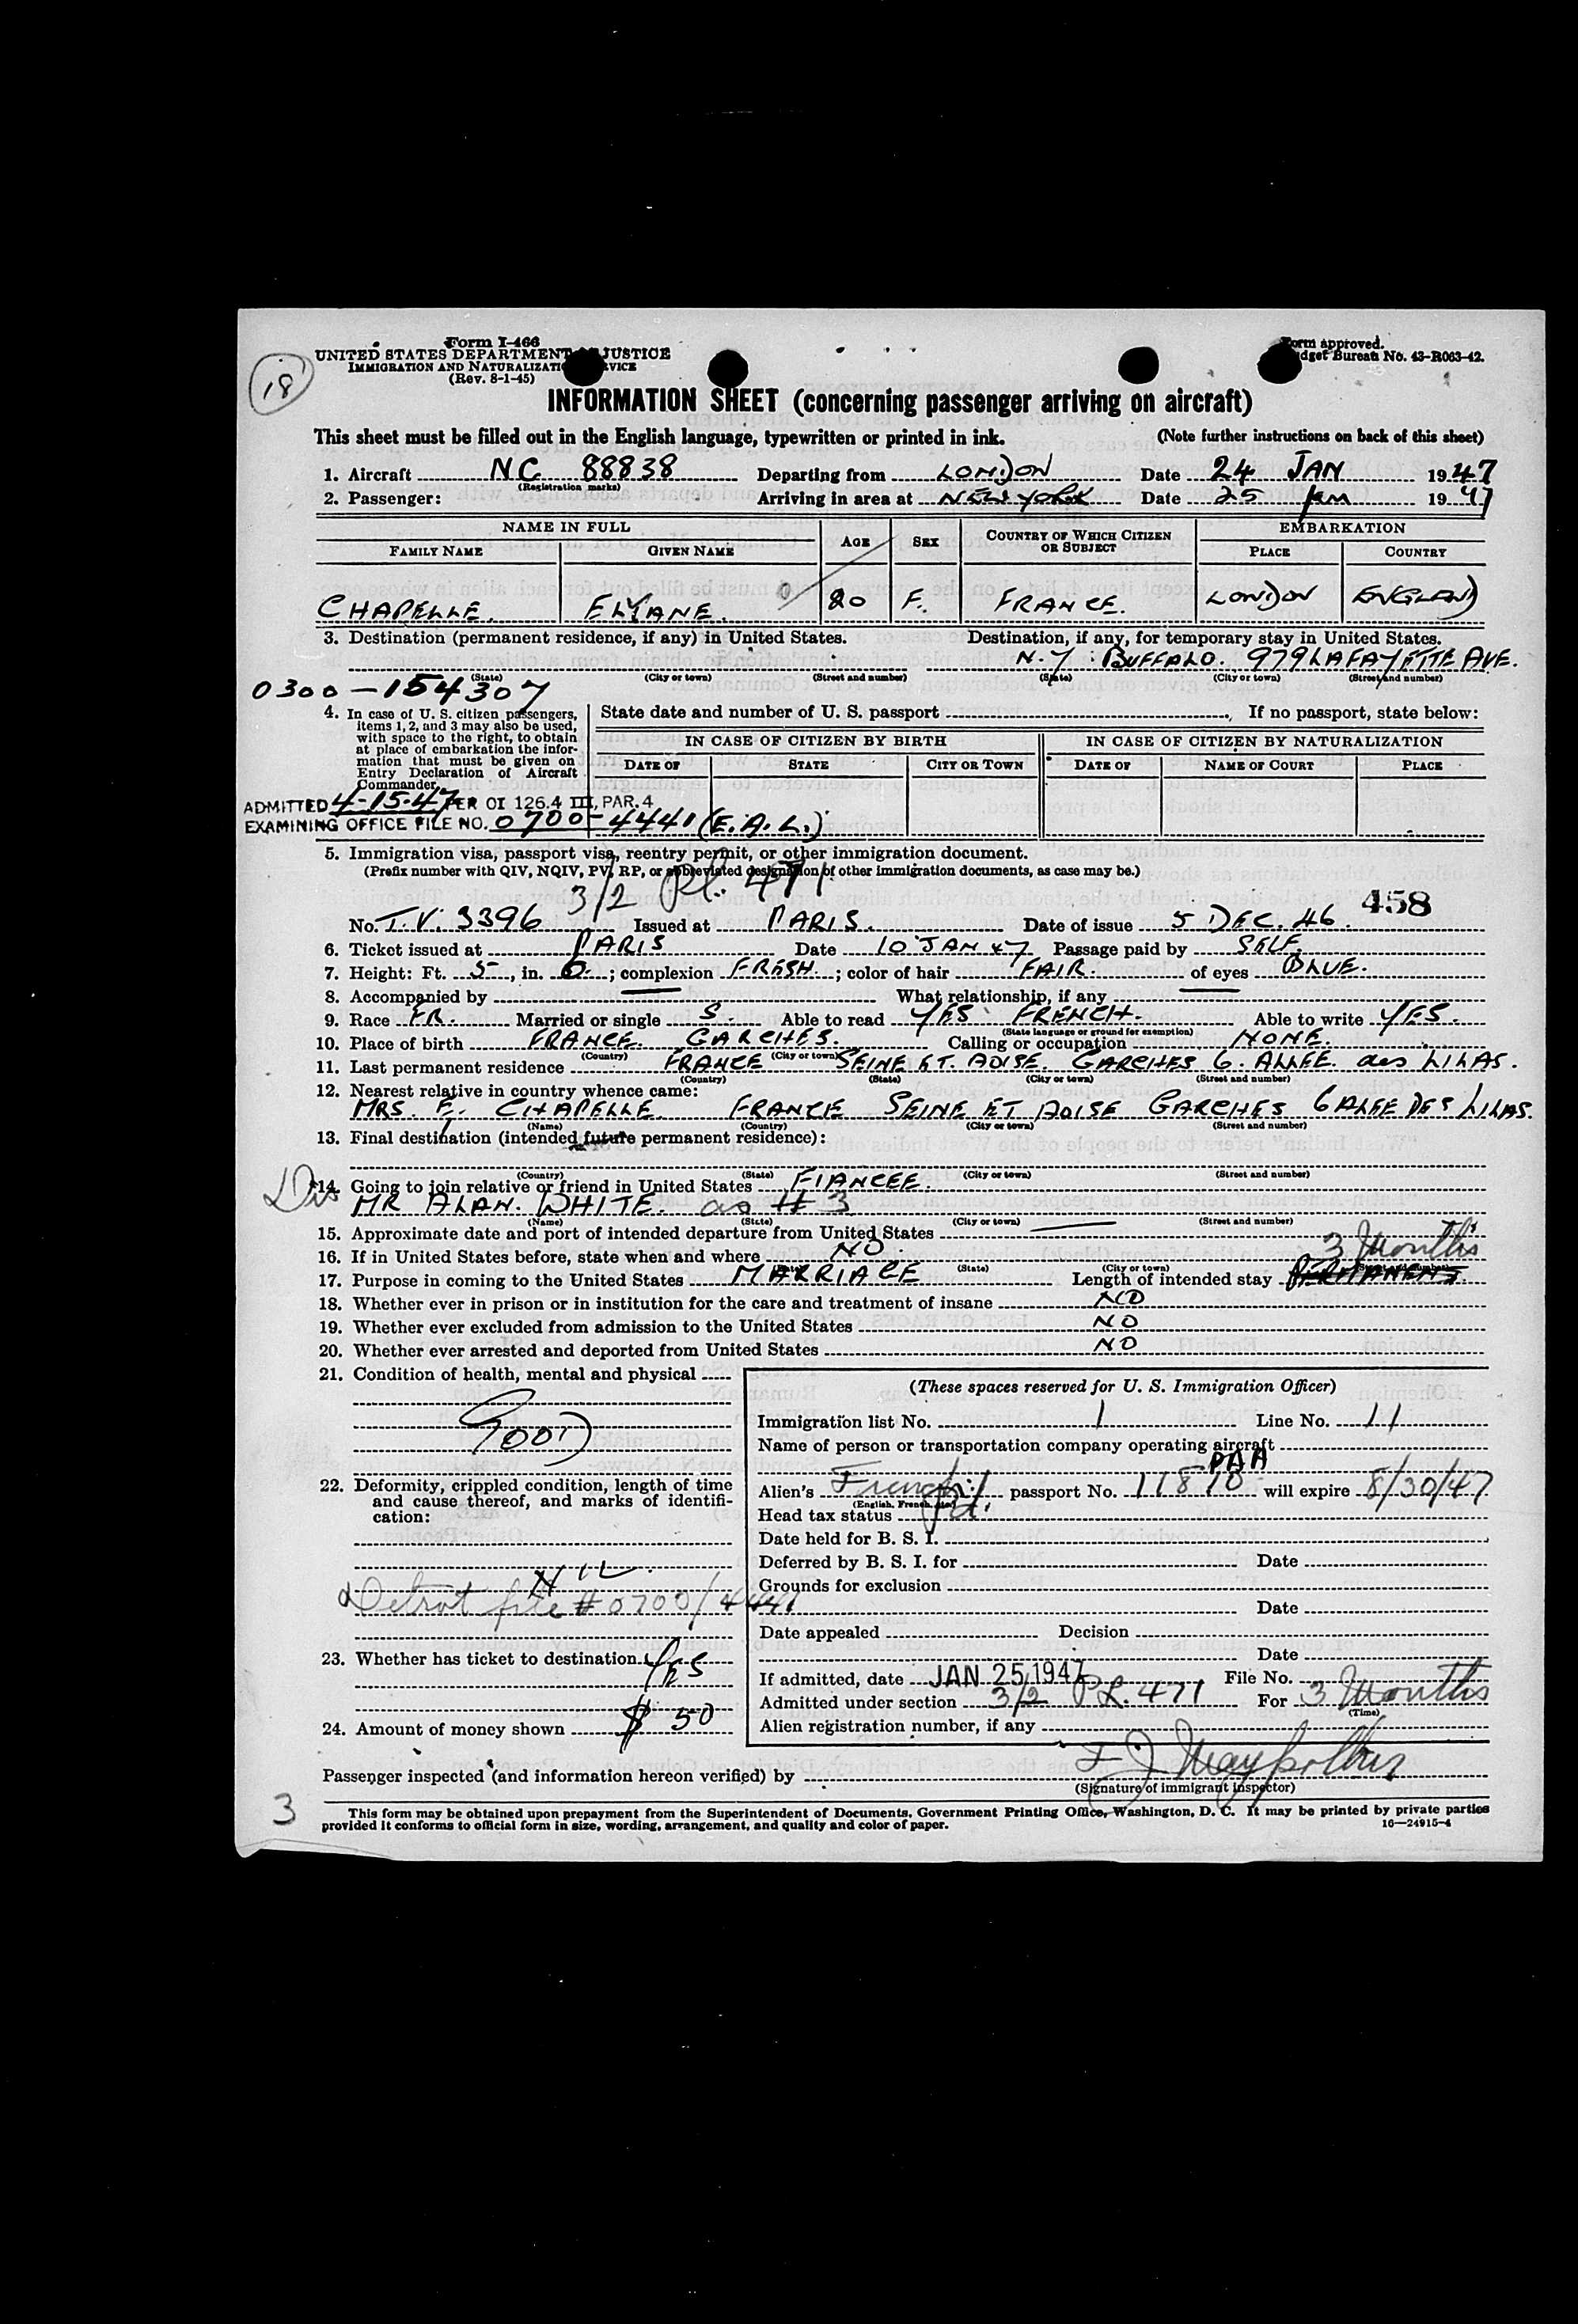 18
Form I-466
UNITED STATES DEPARTMENT JUSTICE
IMMIGRATION AND NATURALIZATION
(Rev. 8-1-45)
Form approved.
Budget Bureau No. 43-R063-42.
INFORMATION SHEET (concerning passenger arriving on aircraft)
This sheet must be filled out in the English language, typewritten or printed in ink. (Note further instructions on back of this sheet)
1. Aircraft NC 88838 Departing from LONDON Date 24 JAN 1947
(Registration marks)
2. Passenger: Arriving in area at NEW YORK Date 25 Jan 1947
NAME IN FULL AGE SEX COUNTRY OF WHICH CITIZEN OR SUBJECT EMBARKATION
FAMILY NAME GIVEN NAME PLACE COUNTRY
CHAPELLE. ELYANE. 20 F. FRANCE. LONDON ENGLAND
3. Destination (permanent residence, if any) in United States. Destination, if any, for temporary stay in United States.
N.Y BUFFALO. 979 LAFAYETTE AVE.
(State) (City or town) (Street and number) (State) (City or town) (Street and number)
0300-154307
4. In case of U. S. citizen passengers, items 1, 2, and 3 may also be used, with space to the right, to obtain at place of embarkation the information that must be given on Entry Declaration of Aircraft Commander.
State date and number of U. S. passport If no passport, state below:
IN CASE OF CITIZEN BY BIRTH IN CASE OF CITIZEN BY NATURALIZATION
DATE OF STATE CITY OR TOWN DATE OF NAME OF COURT PLACE
ADMITTED 4-15-47 PER OI 126.4 III, PAR. 4
EXAMINING OFFICE FILE NO. 0700-4441 (E.A.L.)
5. Immigration visa, passport visa, reentry permit, or other immigration document.
(Prefix number with QIV, NQIV, PV, RP, or abbreviated designation of other immigration documents, as case may be.)
3/2 Pl. 471
458
No. T.V. 3396 Issued at PARIS. Date of issue 5 DEC. 46.
6. Ticket issued at PARIS Date 10 JAN 47 Passage paid by SELF.
7. Height: Ft. 5, in. 6.; complexion FRESH.; color of hair FAIR. of eyes BLUE.
8. Accompanied by What relationship, if any
9. Race FR. Married or single S. Able to read YES FRENCH. Able to write YES.
(State language or ground for exemption)
10. Place of birth FRANCE. GARCHES. Calling or occupation NONE.
(Country) (City or town)
11. Last permanent residence FRANCE SEINE ET. AOISE. GARCHES 6. ALLEE. des LILAS.
(Country) (State) (City or town) (Street and number)
12. Nearest relative in country whence came:
MRS. E. CHAPELLE. FRANCE SEINE ET AOISE GARCHES 6 ALEE DES LILAS.
(Name) (Country) (City or town) (Street and number)
13. Final destination (intended future permanent residence):
(Country) (State) (City or town) (Street and number)
14. Going to join relative or friend in United States FIANCEE.
MR ALAN. WHITE. as # 3
(Name) (State) (City or town) (Street and number)
15. Approximate date and port of intended departure from United States
16. If in United States before, state when and where NO.
(State) (City or town) (Street and number)
3 Months
17. Purpose in coming to the United States MARRIAGE Length of intended stay PERMANENT
18. Whether ever in prison or in institution for the care and treatment of insane NO
19. Whether ever excluded from admission to the United States NO
20. Whether ever arrested and deported from United States NO
21. Condition of health, mental and physical
GOOD
22. Deformity, crippled condition, length of time and cause thereof, and marks of identification:
NIL.
Detroit file # 0700/4441
23. Whether has ticket to destination YES
24. Amount of money shown $ 50
(These spaces reserved for U. S. Immigration Officer)
Immigration list No. 1 Line No. 11
Name of person or transportation company operating aircraft
PAA
Alien's French passport No. 11810 will expire 8/30/47
(English, French, etc.)
Head tax status pd.
Date held for B. S. I.
Deferred by B. S. I. for Date
Grounds for exclusion
Date
Date appealed Decision
Date
If admitted, date JAN 25 1947 File No.
Admitted under section 3/2 PL. 471 For 3 Months
(Time)
Alien registration number, if any
Passenger inspected (and information hereon verified) by
(Signature of immigrant inspector)
3
This form may be obtained upon prepayment from the Superintendent of Documents, Government Printing Office, Washington, D. C. It may be printed by private parties
provided it conforms to official form in size, wording, arrangement, and quality and color of paper.
16—24915-4